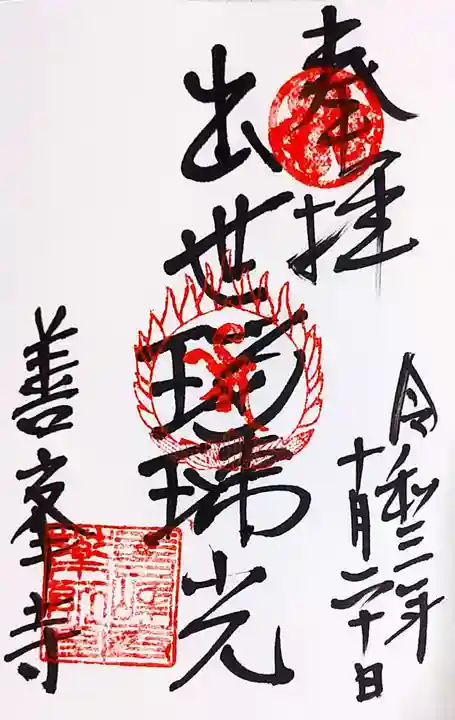 奉拝
令和三年
十月二十日
出世瑠璃光
善峯寺